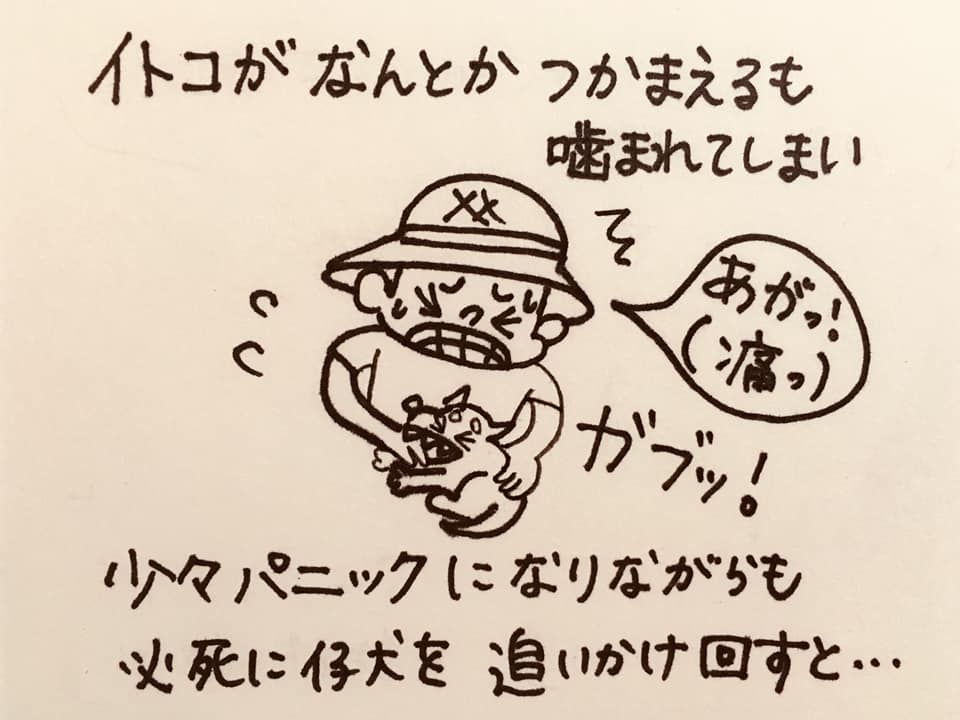 イトコが なんとか つかまえるも
噛まれてしまい
あがっ!
(痛っ)
ガブッ!
少々パニックになりながらも
必死に仔犬を 追いかけ回すと...